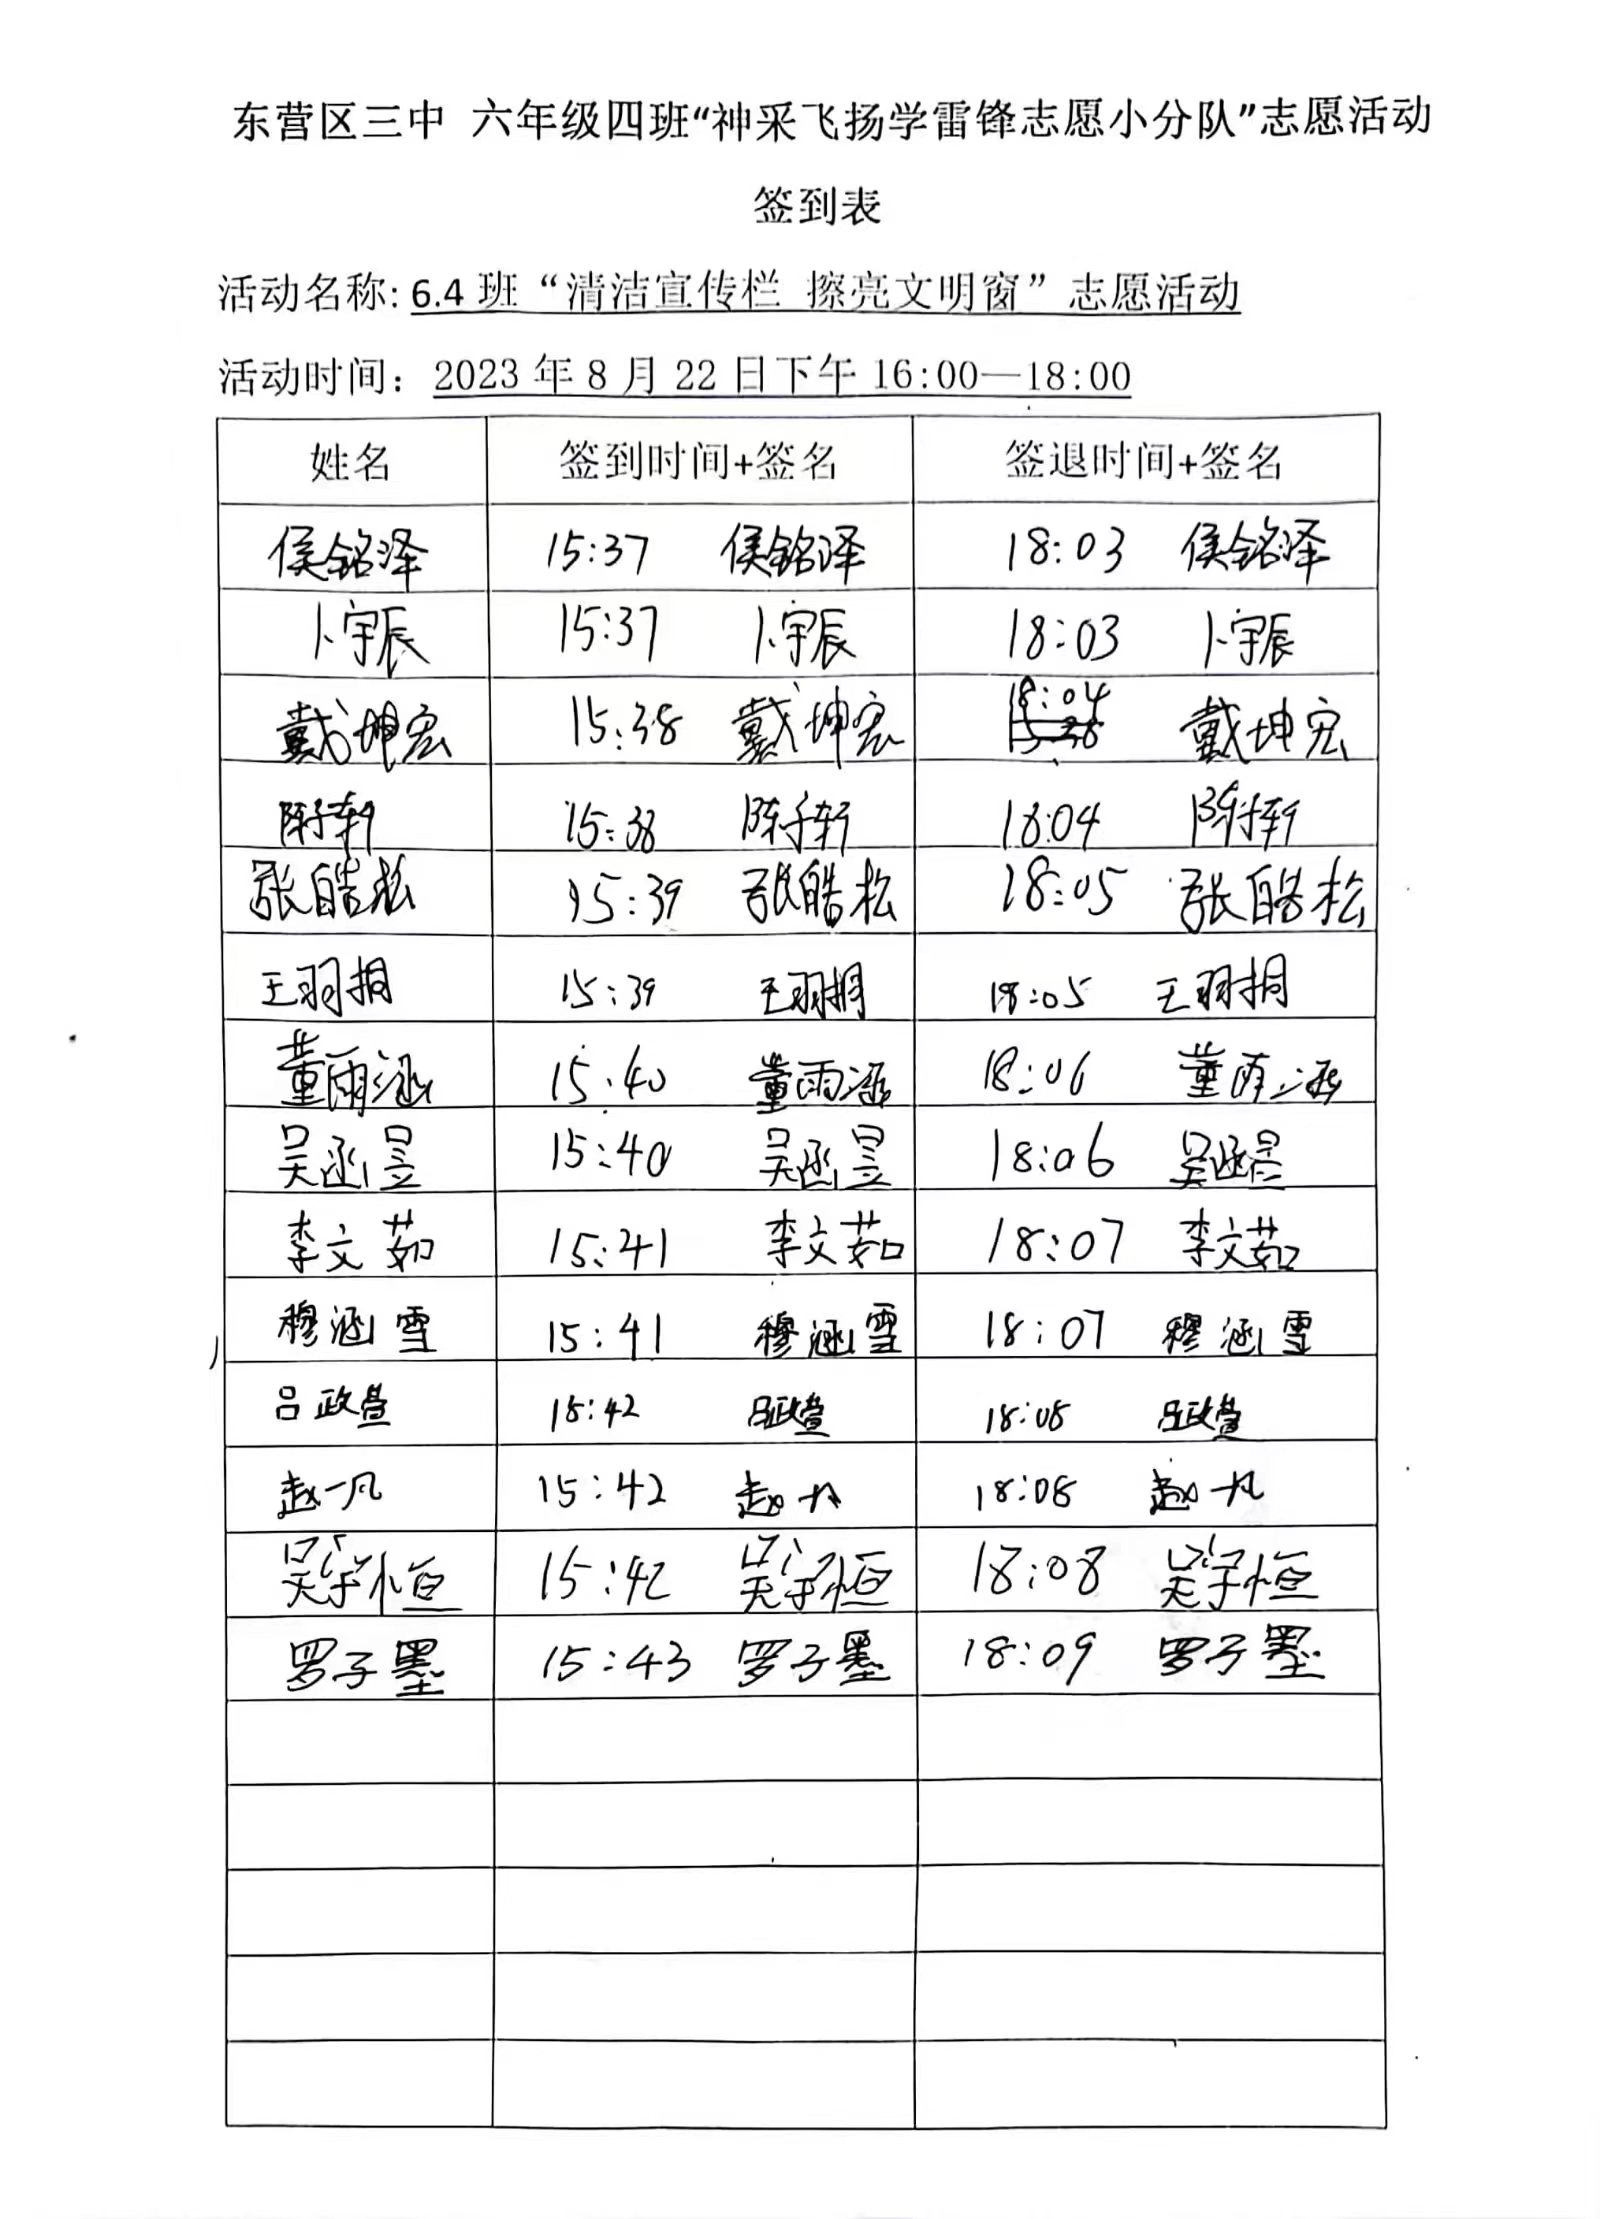 东营区三中 六年级四班“神采飞扬学雷锋志愿小分队”志愿活动
签到表
活动名称: 6.4 班“清洁宣传栏 擦亮文明窗”志愿活动
活动时间：2023 年 8 月 22 日下午 16:00—18:00
姓名 签到时间+签名 签退时间+签名
侯铭泽 15:37 侯铭泽 18:03 侯铭泽
卜宇辰 15:37 卜宇辰 18:03 卜宇辰
戴坤宏 15:38 戴坤宏 18:04 戴坤宏
陈子轩 15:38 陈子轩 18:04 陈子轩
张皓松 15:39 张皓松 18:05 张皓松
王羽桐 15:39 王羽桐 18:05 王羽桐
董雨涵 15:40 董雨涵 18:06 董雨涵
吴函昱 15:40 吴函昱 18:06 吴函昱
李文茹 15:41 李文茹 18:07 李文茹
穆涵雪 15:41 穆涵雪 18:07 穆涵雪
吕政萱 15:42 吕政萱 18:08 吕政萱
赵一凡 15:42 赵一凡 18:08 赵一凡
吴宇恒 15:42 吴宇恒 18:08 吴宇恒
罗子墨 15:43 罗子墨 18:09 罗子墨